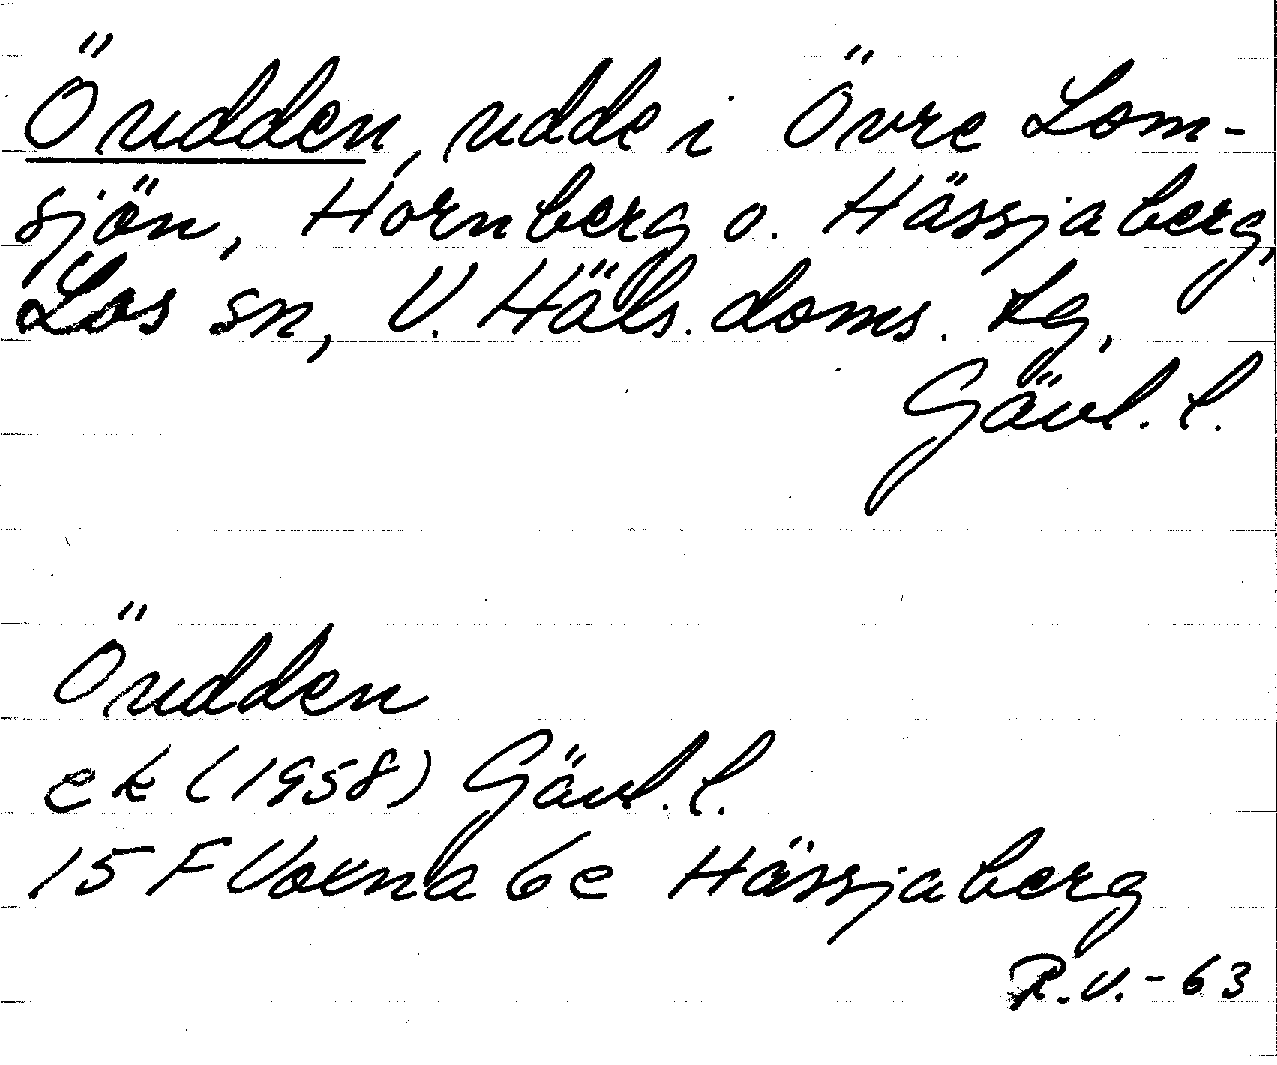 Öudden, udde i Övre Lom-
sjön, Hornberg o. Hässjaberg,
Los sn, V. Häls. doms. tg,
Gävl. l.
Öudden
ek (1958) Gävl. l.
15 F Voxna 6e Hässjaberg
R.V.-63